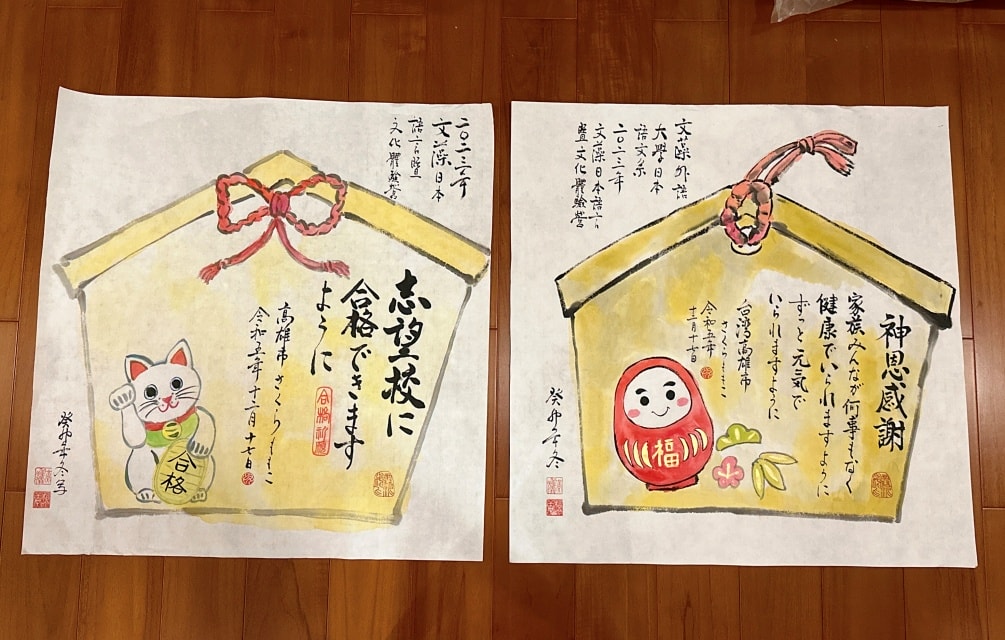 二〇二三年
文藻日本
語言暨
文化體驗營
志望校に
合格できます
ように
合格祈願
高雄市 さくらももこ
令和五年 十二月十七日
合格
癸卯年冬写
文藻外語
大學日本
語文系
二〇二三年
文藻日本語言
暨文化體驗營
神恩感謝
家族みんなが何事もなく
健康でいられますように
ずっと元気で
いられますように
台湾高雄市
さくらももこ
令和五年
十二月十七日
福
癸卯年冬